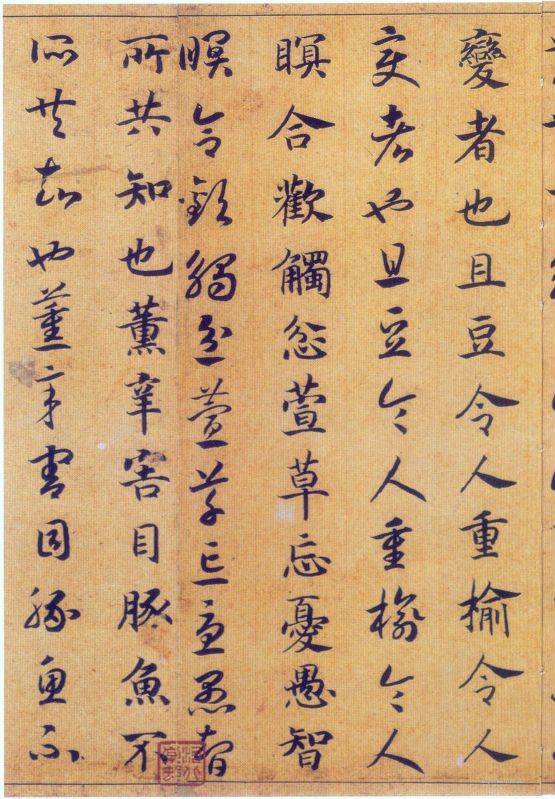 變者也且豆令人重榆令人
變者也且豆令人重榆令人
瞑合歡觸忿萱草忘憂愚智
瞑合歡觸忿萱草忘憂愚智
所共知也薰辛害目豚魚不
所共知也薰辛害目豚魚不